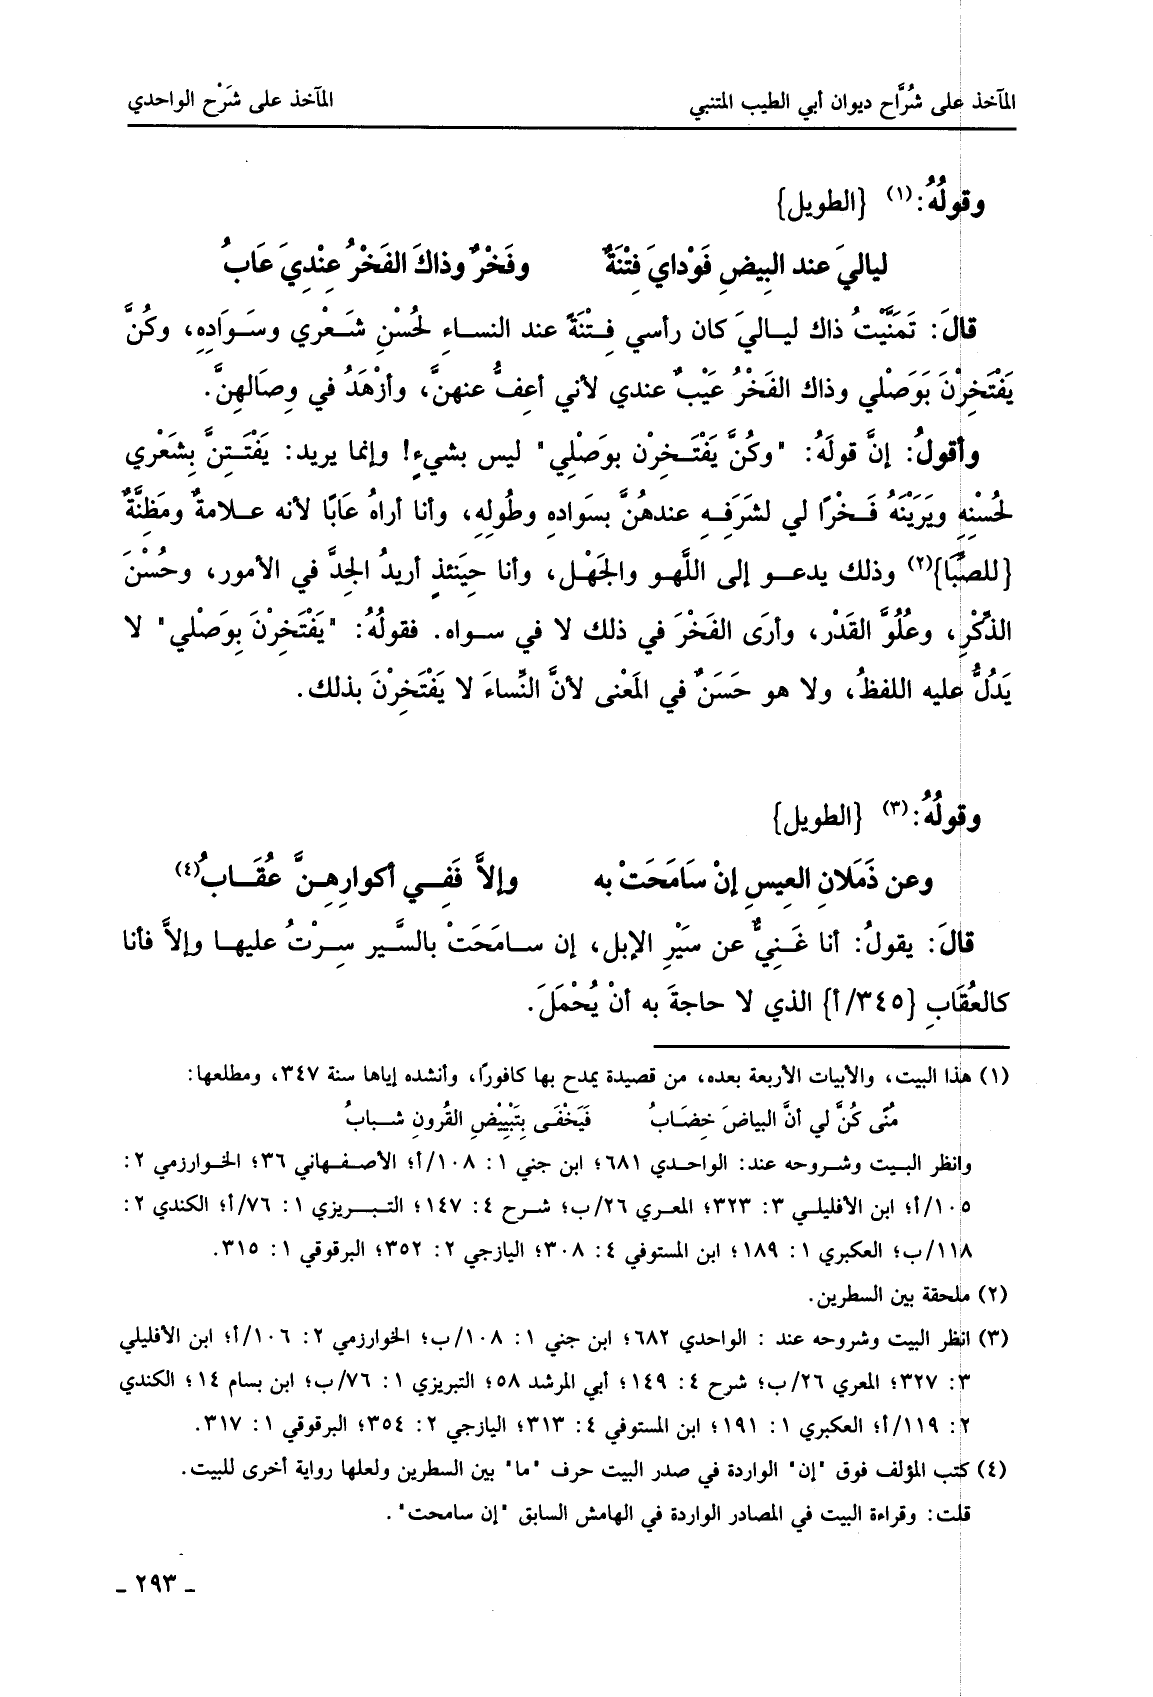 المآخذ على شُرَّاح ديوان أبي الطيب المتنبي المآخذ على شَرْح الواحدي
وقولُهُ: (١) {الطويل}
ليالي عند البِيضِ فَوْدايَ فِتْنَةٌ وفَخْرٌ وذاكَ الفَخْرُ عِنْدِيَ عَابُ
قالَ: تَمَنَّيْتُ ذاك ليالي كان رأسي فِتْنَةً عند النساءِ لحُسْنِ شَعْري وسَوَادِهِ، وكُنَّ
يَفْتَخِرْنَ بَوَصْلي وذاك الفَخْرُ عَيْبٌ عندي لأني أعفُّ عنهنَّ، وأزْهَدُ في وِصَالهِنَّ.
وأقولُ: إنَّ قولَهُ: "وكُنَّ يَفْتَخِرْن بوَصْلِي" ليس بشيءٍ! وإنما يريد: يَفْتَتِنَّ بِشَعْري
لحُسْنِهِ ويَرَيْنَهُ فَخْرًا لي لشَرَفِهِ عندهُنَّ بسَوادِهِ وطُولِهِ، وأنا أراهُ عَابًا لأنه علامةٌ ومَظِنَّةٌ
{للصِّبَا}(٢) وذلك يدعو إلى اللَّهو والجَهْل، وأنا حِيَنئذٍ أريدُ الجِدَّ في الأمور، وحُسْنَ
الذِّكْرِ، وعُلُوَّ القَدْر، وأرَى الفَخْرَ في ذلك لا في سواه. فقولُهُ: "يَفْتَخِرْنَ بوَصْلي" لا
يَدُلُّ عليه اللفظُ، ولا هو حَسَنٌ في المَعْنى لأنَّ النِّساءَ لا يَفْتَخِرْنَ بذلك.
وقولُهُ: (٣) {الطويل}
وعن ذَمَلانِ العيسِ إنْ سَامَحَتْ به وإلاَّ فَفِي أكوارِهِنَّ عُقَابُ(٤)
قالَ: يقولُ: أنا غَنِيٌّ عن سَيْرِ الإبل، إن سامَحَتْ بالسَّير سِرْتُ عليها وإلاَّ فأنا
كالعُقَابِ {٣٤٥/أ} الذي لا حاجةَ به أنْ يُحْمَلَ.
(١) هذا البيت، والأبيات الأربعة بعده، من قصيدة يمدح بها كافورًا، وأنشده إياها سنة ٣٤٧، ومطلعها:
مُنًى كُنَّ لي أنَّ البياضَ خِضَابُ فَيَخْفَى بِتَبْيِيْضِ القُرونِ شبابُ
وانظر البيت وشروحه عند: الواحدي ٦٨١؛ ابن جني ١: ١٠٨/أ؛ الأصفهاني ٣٦؛ الخوارزمي ٢:
١٠٥/أ؛ ابن الأفليلي ٣: ٣٢٣؛ المعري ٢٦/ب؛ شرح ٤: ١٤٧؛ التبريزي ١: ٧٦/أ؛ الكندي ٢:
١١٨/ب؛ العكبري ١: ١٨٩؛ ابن المستوفي ٤: ٣٠٨؛ اليازجي ٢: ٣٥٢؛ البرقوقي ١: ٣١٥.
(٢) ملحقة بين السطرين.
(٣) انظر البيت وشروحه عند : الواحدي ٦٨٢؛ ابن جني ١: ١٠٨/ب؛ الخوارزمي ٢: ١٠٦/أ؛ ابن الأفليلي
٣: ٣٢٧؛ المعري ٢٦/ب؛ شرح ٤: ١٤٩؛ أبي المرشد ٥٨؛ التبريزي ١: ٧٦/ب؛ ابن بسام ١٤؛ الكندي
٢: ١١٩/أ؛ العكبري ١: ١٩١؛ ابن المستوفي ٤: ٣١٣؛ اليازجي ٢: ٣٥٤؛ البرقوقي ١: ٣١٧.
(٤) كتب المؤلف فوق "إن" الواردة في صدر البيت حرف "ما" بين السطرين ولعلها رواية أخرى للبيت.
قلت: وقراءة البيت في المصادر الواردة في الهامش السابق "إن سامحت".
ـ ٢٩٣ ـ